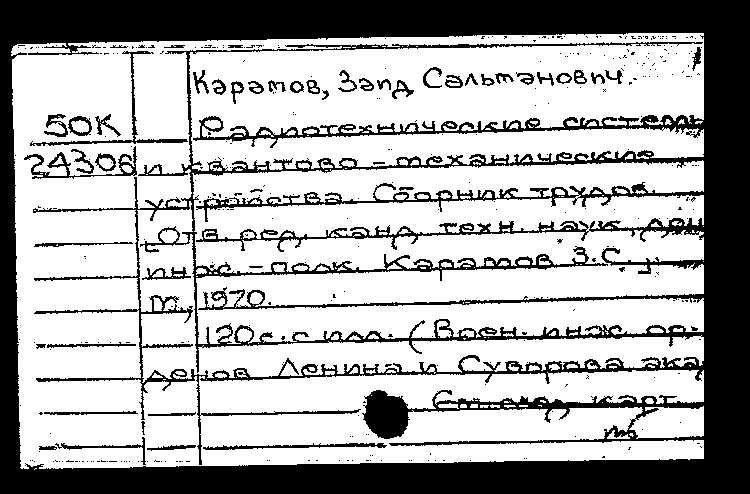 Каратов, Заид Сальманович.
50К
Радиотехнические системы
24306
и квантово-механические
устройства. Сборник трудов.
[Отв. ред. канд. техн. наук, доц.
инж.-полк. Каратов З.С.].
М., 1970.
120 с. с илл. (Воен. инж. ор-
денов Ленина и Суворова ака
См. след. карт.